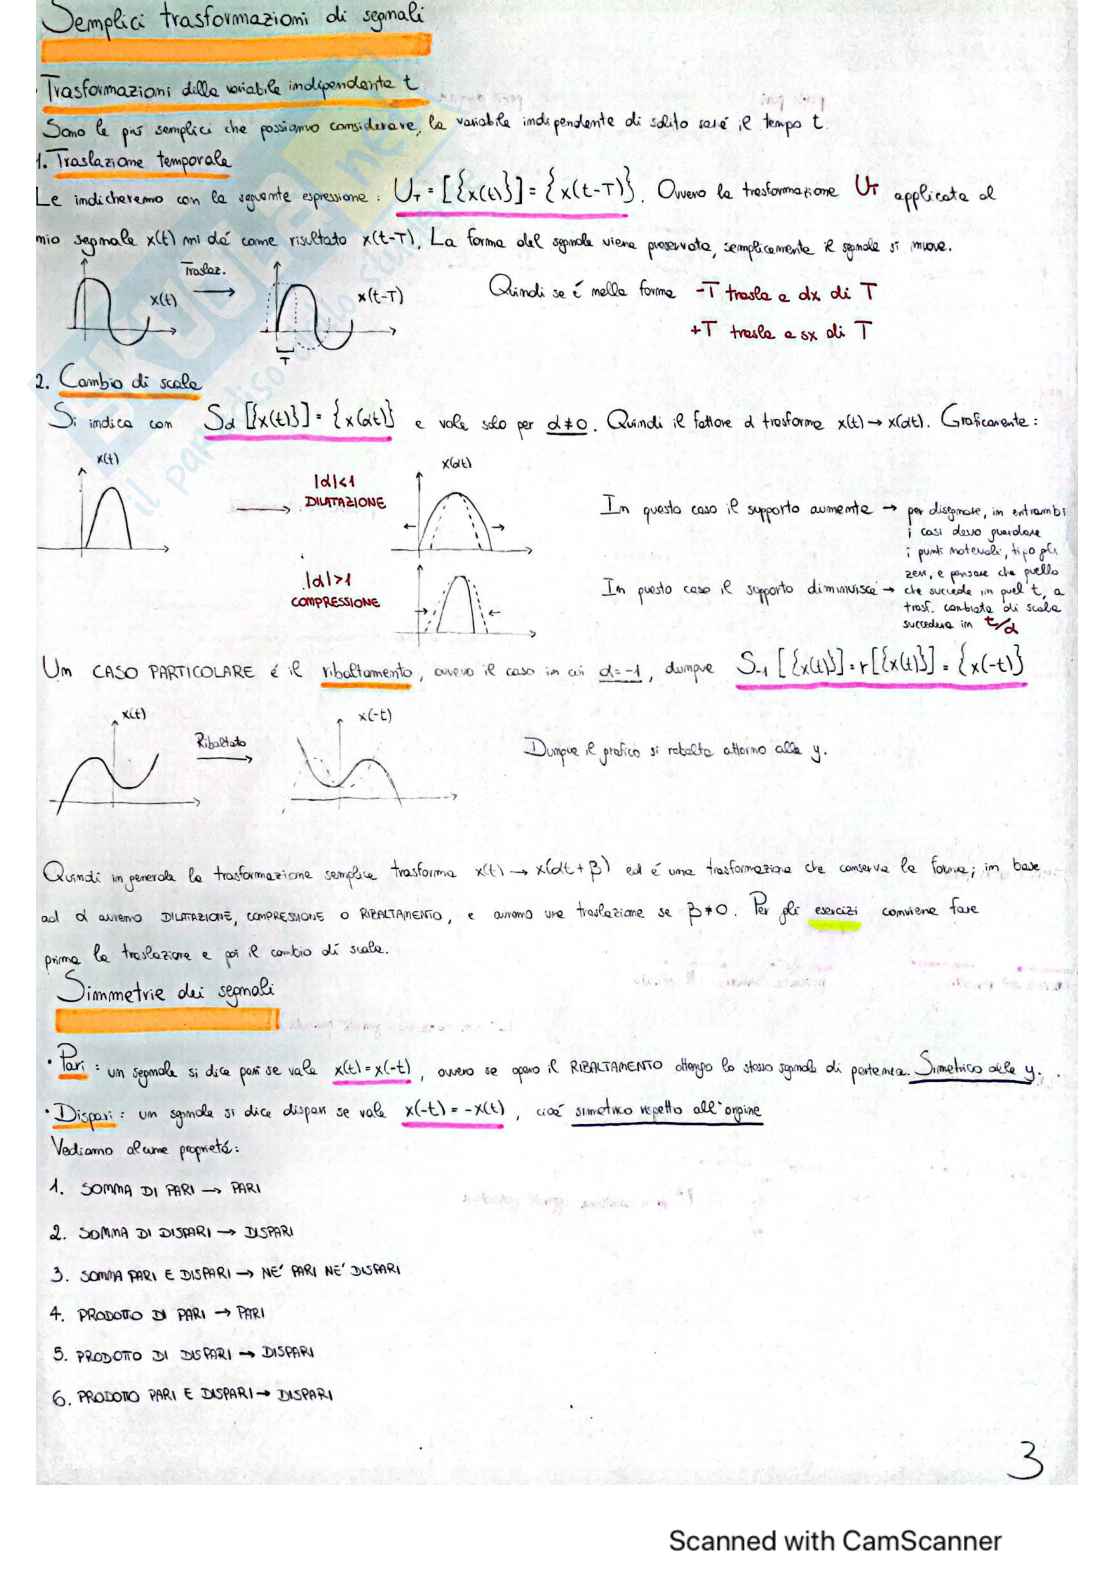 Semplici trasformazioni di segnali
· Trasformazioni della variabile indipendente t
Sono le più semplici che possiamo considerare, la variabile indipendente di solito sarà il tempo t.
1. Traslazione temporale
Le indicheremo con la seguente espressione: U_T = [{x(t)}] = {x(t-T)}. Ovvero la trasformazione U_T applicata al
mio segnale x(t) mi dà come risultato x(t-T). La forma del segnale viene preservata, semplicemente il segnale si muove.
x(t)
Traslaz.
x(t-T)
T
Quindi se è nella forma -T trasla a dx di T
+T trasla a sx di T
2. Cambio di scala
Si indica con S_α [{x(t)}] = {x(αt)} e vale solo per α≠0. Quindi il fattore α trasforma x(t) → x(αt). Graficamente:
x(t)
|α|<1
DILATAZIONE
x(αt)
In questo caso il supporto aumenta → per disegnare, in entrambi
i casi devo guardare
i punti notevoli, tipo gli
zeri, e pensare che quello
|α|>1
COMPRESSIONE
In questo caso il supporto diminuisce → che succede in quel t, a
trasf. cambiata di scala
succederà in t/α
Un CASO PARTICOLARE é il ribaltamento, ovvero il caso in cui α=-1, dunque S_-1 [{x(t)}] = r[{x(t)}] = {x(-t)}
x(t)
Ribaltato
x(-t)
Dunque il grafico si rebalta attorno alla y.
Quindi in generale la trasformazione semplice trasforma x(t) → x(αt + β) ed é una trasformazione che conserva la forma; in base
ad α avremo DILATAZIONE, COMPRESSIONE O RIBALTAMENTO, e avremo una traslazione se β≠0. Per gli esercizi conviene fare
prima la traslazione e poi il cambio di scala.
Simmetrie dei segnali
· Pari: un segnale si dice pari se vale x(t)=x(-t), ovvero se opero il RIBALTAMENTO ottengo lo stesso segnale di partenza. Simetrico alle y.
· Dispari: un segnale si dice dispari se vale x(-t) = -x(t), cioé simetrico rispetto all'orgine
Vediamo alcune proprietá:
1. SOMMA DI PARI → PARI
2. SOMMA DI DISPARI → DISPARI
3. SOMMA PARI E DISPARI → NE' PARI NE' DISPARI
4. PRODOTTO DI PARI → PARI
5. PRODOTTO DI DISPARI → DISPARI
6. PRODOTTO PARI E DISPARI → DISPARI
3
Scanned with CamScanner